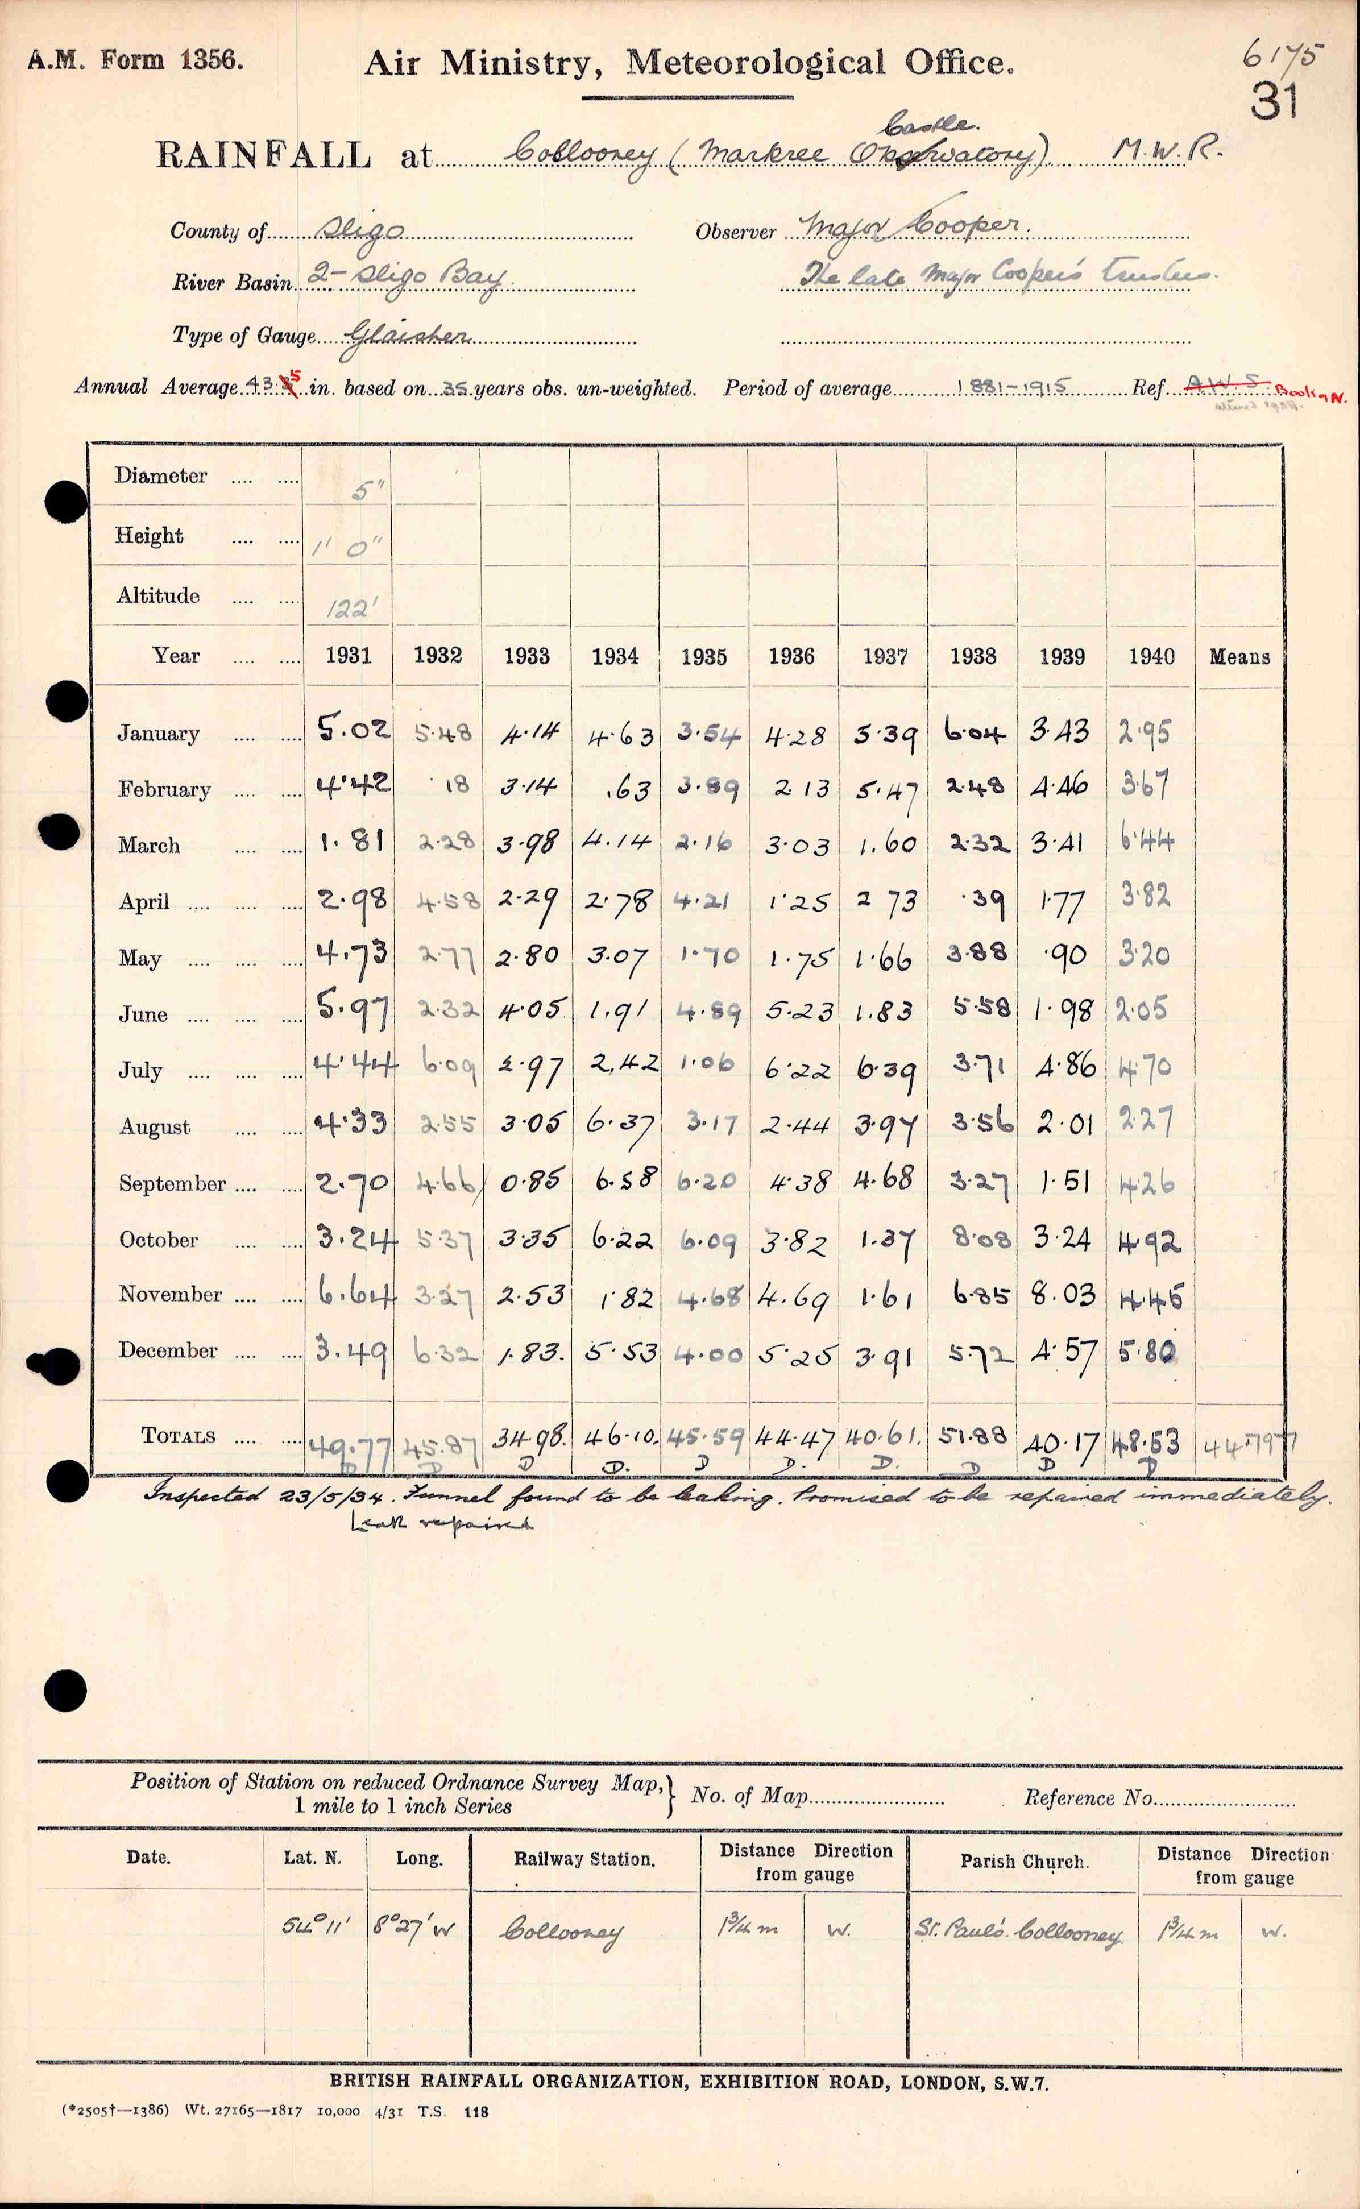 A.M. Form 1356.
Air Ministry, Meteorological Office.
6175
31
Castle.
RAINFALL at Collooney (Markree Observatory) M.W.R.
County of Sligo Observer Major Cooper.
River Basin 2- Sligo Bay The late Major Cooper's trustees.
Type of Gauge Glaisher
Annual Average 43.5 in. based on 35 years obs. un-weighted. Period of average 1881-1915 Ref. A.W.S. Book N.
Diameter .... .... 5"
Height .... .... 1' 0"
Altitude .... .... 122'
Year .... .... 1931 1932 1933 1934 1935 1936 1937 1938 1939 1940 Means
January .... .... 5.02 5.48 4.14 4.63 3.54 4.28 5.39 6.04 3.43 2.95
February .... .... 4.42 .18 3.14 .63 3.89 2.13 5.47 2.48 4.46 3.67
March .... .... 1.81 2.28 3.98 4.14 2.16 3.03 1.60 2.32 3.41 6.44
April .... .... .... 2.98 4.58 2.29 2.78 4.21 1.25 2 73 .39 1.77 3.82
May .... .... .... 4.73 2.77 2.80 3.07 1.70 1.75 1.66 3.88 .90 3.20
June .... .... .... 5.97 2.32 4.05 1.91 4.89 5.23 1.83 5.58 1.98 2.05
July .... .... .... 4.44 6.09 2.97 2.42 1.06 6.22 6.39 3.71 4.86 4.70
August .... .... 4.33 2.55 3.05 6.37 3.17 2.44 3.97 3.56 2.01 2.27
September .... .... 2.70 4.66 0.85 6.58 6.20 4.38 4.68 3.27 1.51 4.26
October .... .... 3.24 5.37 3.35 6.22 6.09 3.82 1.37 8.08 3.24 4.92
November .... .... 6.64 3.27 2.53 1.82 4.68 4.69 1.61 6.85 8.03 4.45
December .... .... 3.49 6.32 1.83. 5.53 4.00 5.25 3.91 5.72 4.57 5.80
TOTALS .... .... 49.77 45.87 34.98. 46.10. 45.59 44.47 40.61. 51.88 40.17 48.53 44.797
D D D D. D D. D. D D D
Inspected 23/5/34. Funnel found to be leaking. Promised to be repaired immediately.
Leak repaired
Position of Station on reduced Ordnance Survey Map, } No. of Map Reference No.
1 mile to 1 inch Series
Date. Lat. N. Long. Railway Station. Distance Direction from gauge Parish Church. Distance Direction from gauge
54° 11' 8° 27' W Collooney 1¾ m W. St. Paul's. Collooney 1¾ m W.
BRITISH RAINFALL ORGANIZATION, EXHIBITION ROAD, LONDON, S.W.7.
(*2505†—1386) Wt. 27165—1817 10,000 4/31 T.S. 118